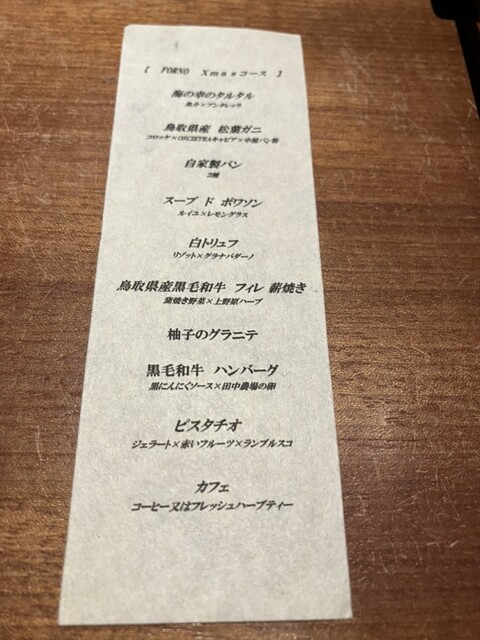 【 FORNO Xmasコース 】
海の幸のタルタル
魚介×ブンタレッラ
鳥取県産 松葉ガニ
コロッケ×ORCHETRAキャビア×中屋パン粉
自家製パン
2種
スープ ド ポワソン
ルイユ×レモングラス
白トリュフ
リゾット×グラナパダーノ
鳥取県産黒毛和牛 フィレ 薪焼き
窯焼き野菜×上野原ハーブ
柚子のグラニテ
黒毛和牛 ハンバーグ
黒にんにくソース×田中農場の卵
ピスタチオ
ジェラート×赤いフルーツ×ランブルスコ
カフェ
コーヒー又はフレッシュハーブティー